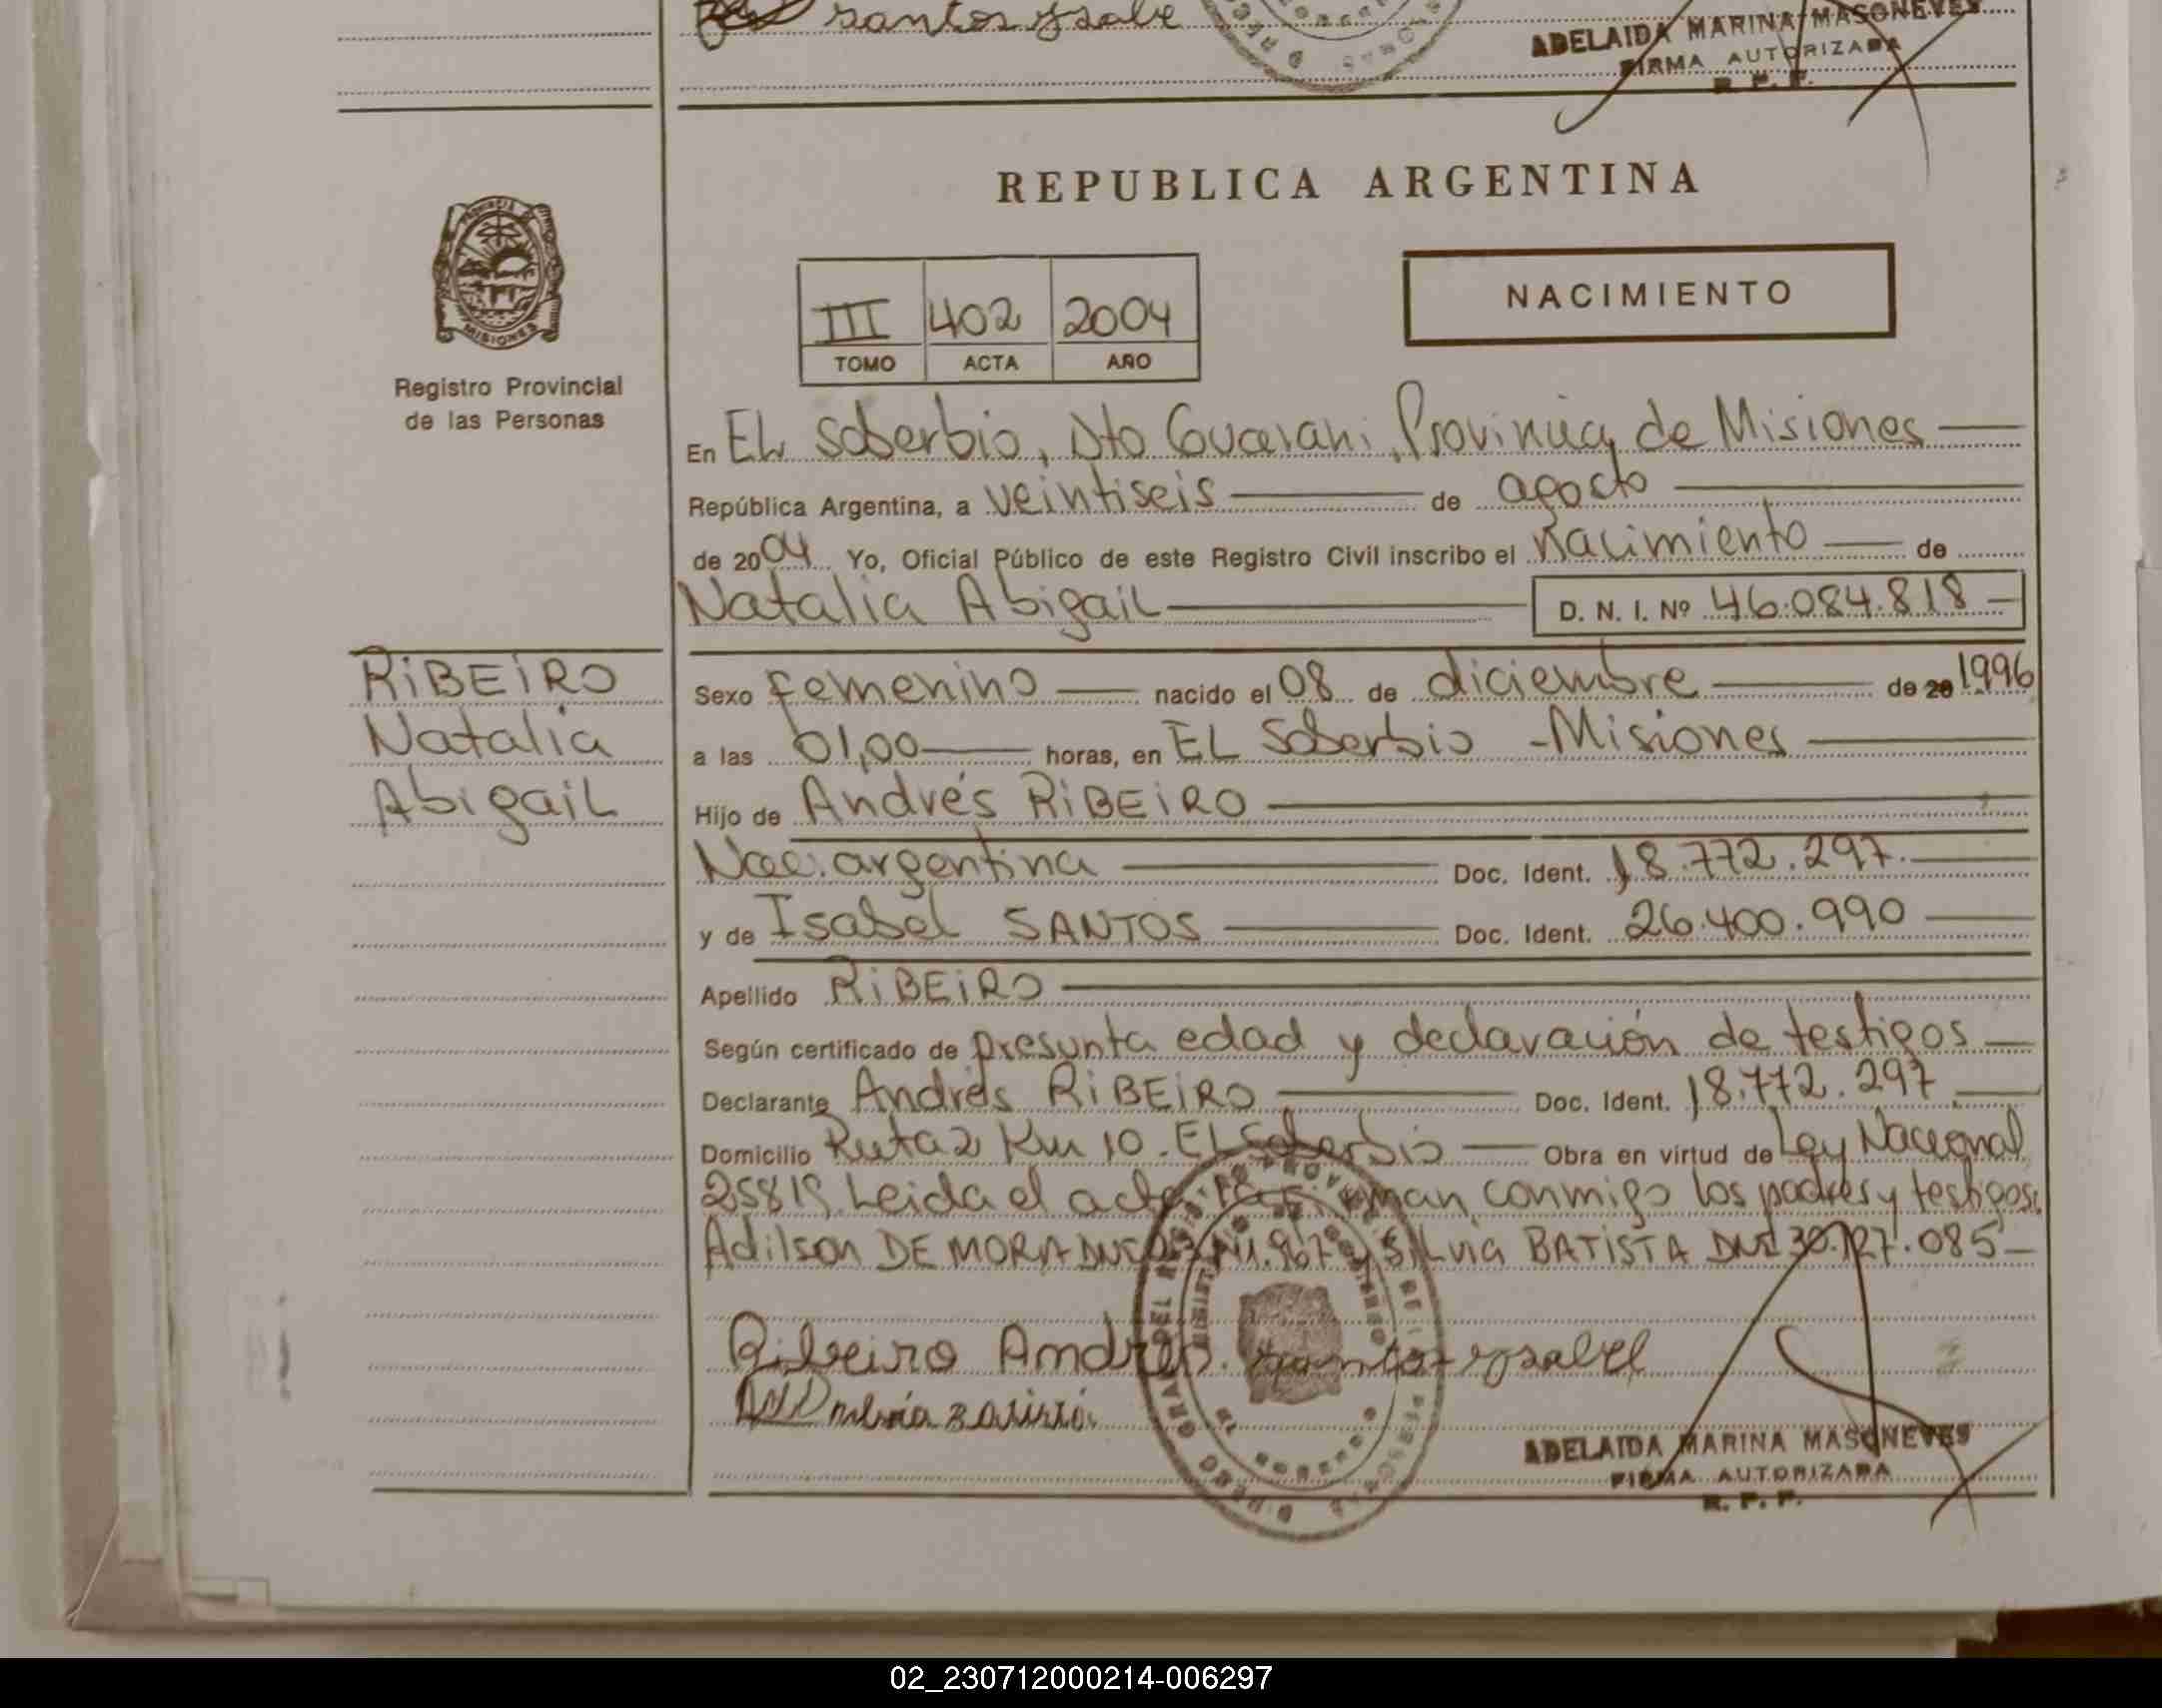 santos ysabe
ADELAIDA MARINA MASONEVES
FIRMA AUTORIZADA
R. P. P.
REPUBLICA ARGENTINA
PROVINCIA
MISIONES
Registro Provincial
de las Personas
III 402 2004
TOMO ACTA AÑO
NACIMIENTO
En EL Soberbio, Dto Guarani, Provincia de Misiones
República Argentina, a veintiseis de agosto
de 2004 Yo, Oficial Público de este Registro Civil inscribo el Nacimiento de
Natalia Abigail D. N. I. Nº 46.084.818
RIBEIRO
Natalia
Abigail
Sexo femenino nacido el 08 de diciembre de 20 1996
a las 01,00 horas, en EL Soberbio - Misiones
Hijo de Andrés RIBEIRO
Nac. argentina Doc. Ident. 18.772.297.
y de Isabel SANTOS Doc. Ident. 26.400.990
Apellido RIBEIRO
Según certificado de presunta edad y declaración de testigos
Declarante Andrés RIBEIRO Doc. Ident. 18.772.297
Domicilio Ruta 2 Km 10 - EL Soberbio Obra en virtud de Ley Nacional
25819. Leida el acta la firman conmigo los padres y testigos:
Adilson DE MORA DNI y Silvia BATISTA DNI 30.727.085
Ribeiro Andres santos ysabel
silvia Batista
ADELAIDA MARINA MASONEVES
FIRMA AUTORIZADA
R. P. P.
02_230712000214-006297